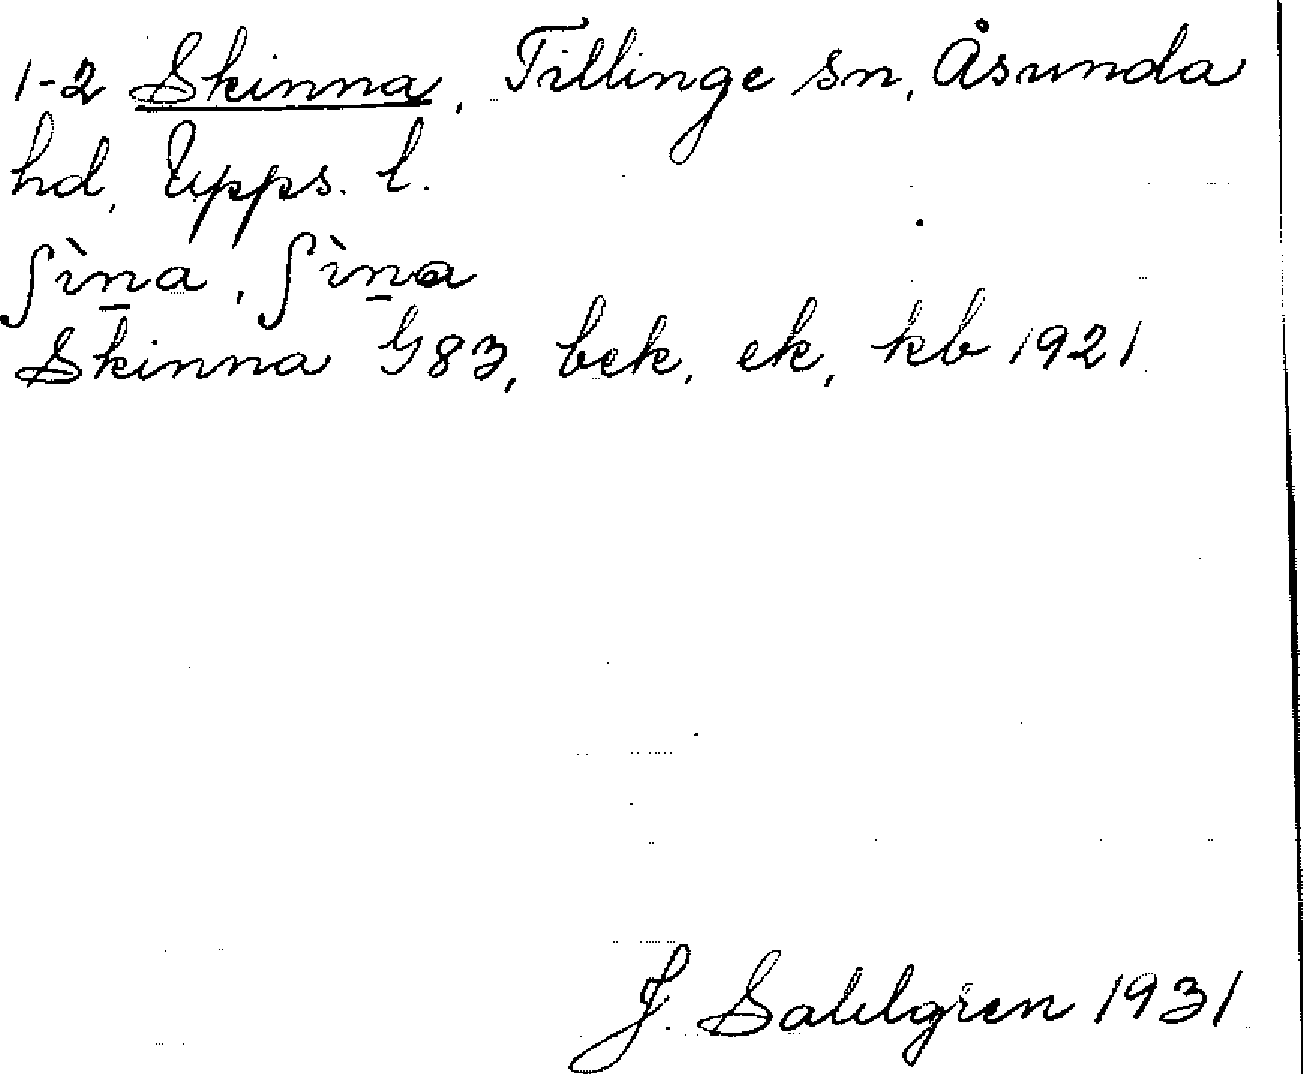 1-2 Skinna, Tillinge sn, Åsunda
hd, Upps. l.
ʃìn̲a, ʃìn̲a
Skinna G83, bek, ek, kb 1921
J. Sahlgren 1931